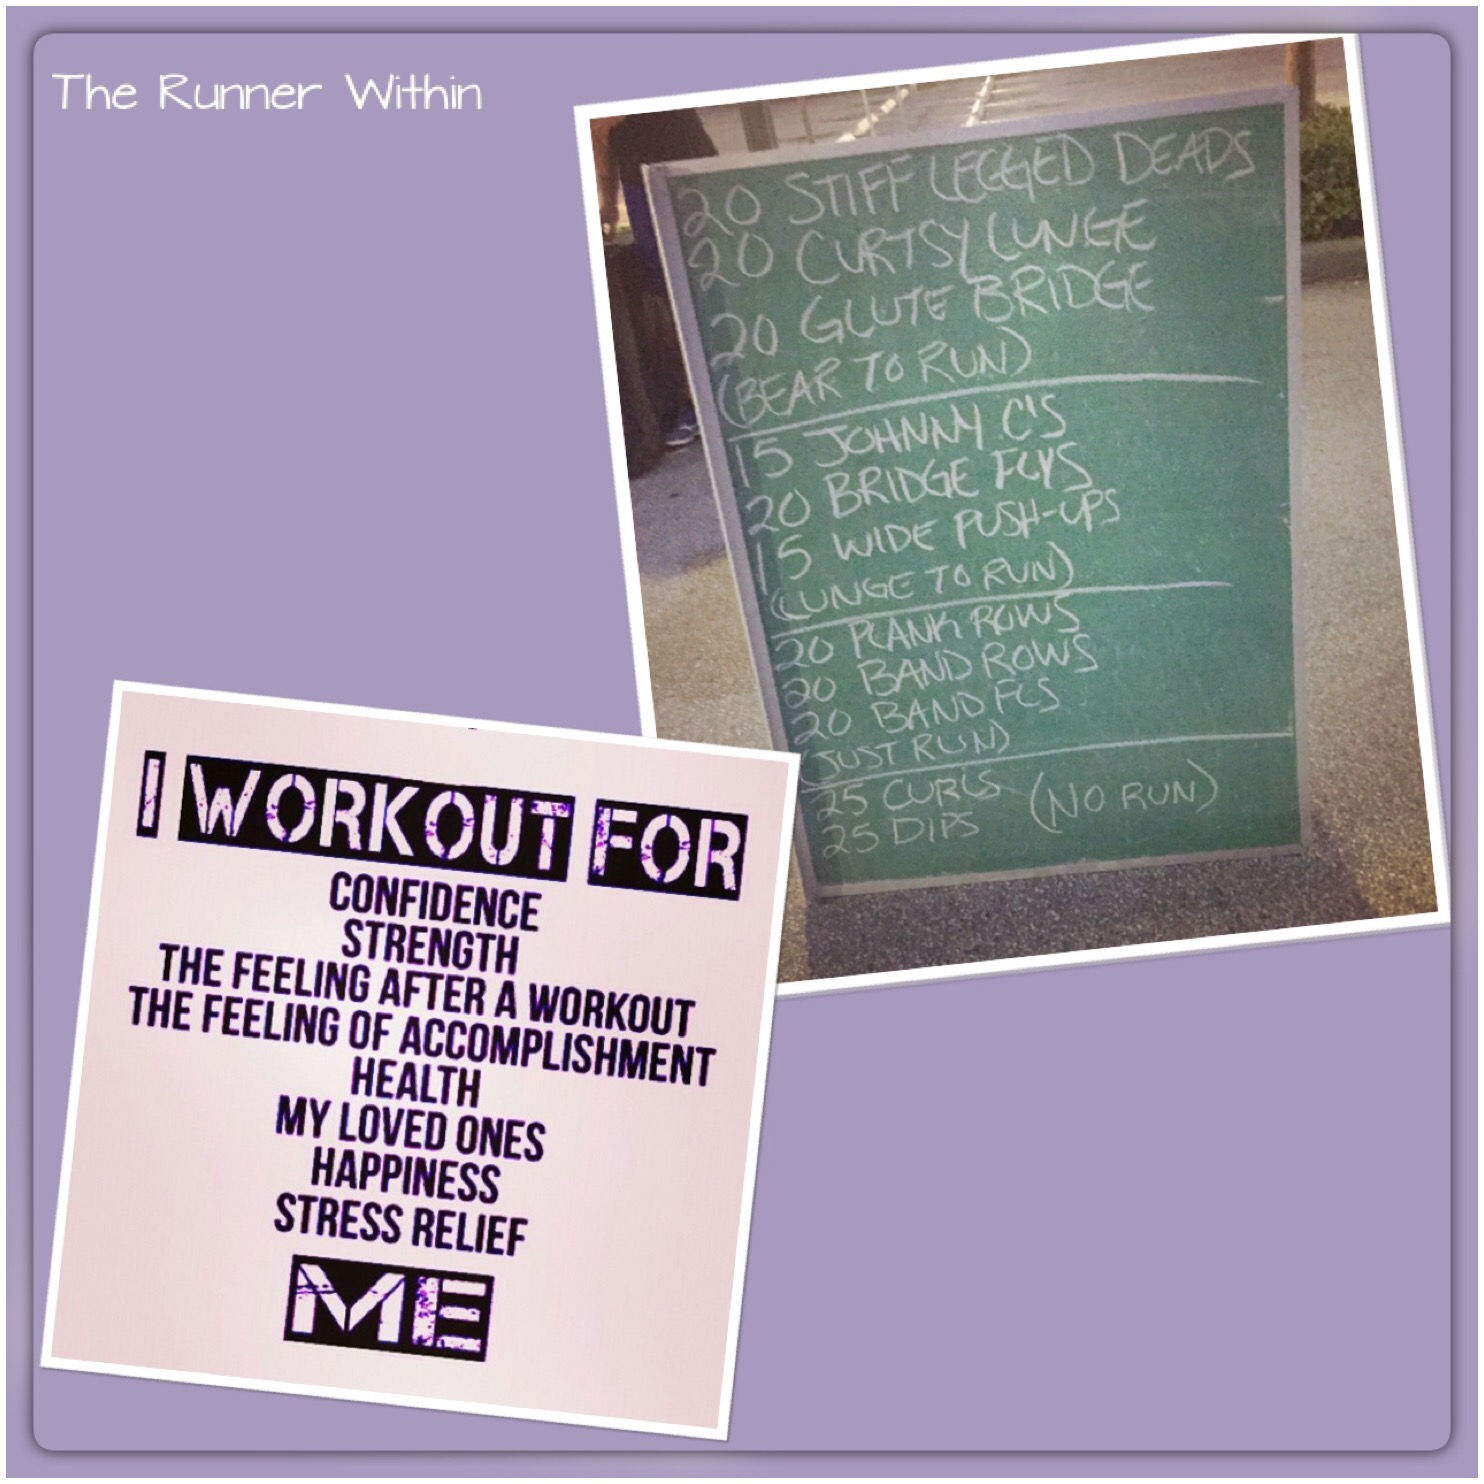 The Runner Within
20 STIFF LEGGED DEADS
20 CURTSY LUNGE
20 GLUTE BRIDGE
(BEAR TO RUN)
15 JOHNNY C'S
20 BRIDGE FLYS
15 WIDE PUSH-UPS
(LUNGE TO RUN)
20 PLANK ROWS
20 BAND ROWS
20 BAND FLS
(JUST RUN)
25 CURLS (NO RUN)
25 DIPS
I WORKOUT FOR
CONFIDENCE
STRENGTH
THE FEELING AFTER A WORKOUT
THE FEELING OF ACCOMPLISHMENT
HEALTH
MY LOVED ONES
HAPPINESS
STRESS RELIEF
ME